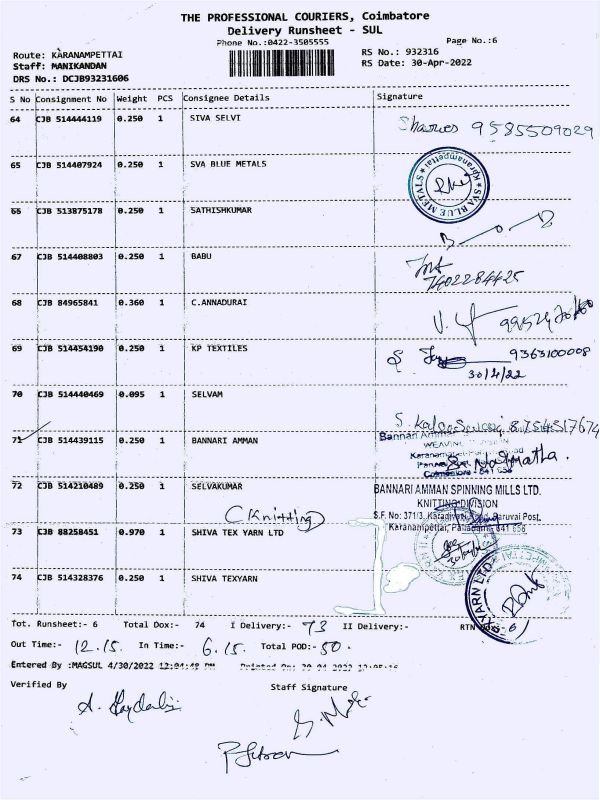 THE PROFESSIONAL COURIERS, Coimbatore
Delivery Runsheet - SUL
Phone No.:0422-3505555
Page No.:6
Route: KARANAMPETTAI
RS No.: 932316
Staff: MANIKANDAN
RS Date: 30-Apr-2022
DRS No.: DCJB93231606
S No Consignment No Weight PCS Consignee Details Signature
64 CJB 514444119 0.250 1 SIVA SELVI 9585509029
65 CJB 514407924 0.250 1 SVA BLUE METALS
SVA BLUE METALS * Karanampettai *
66 CJB 513875178 0.250 1 SATHISHKUMAR
67 CJB 514408803 0.250 1 BABU
7402284425
68 CJB 84965841 0.360 1 C.ANNADURAI
69 CJB 514454190 0.250 1 KP TEXTILES 9363100008
30/4/22
70 CJB 514440469 0.095 1 SELVAM
S. 8754317674
71 CJB 514439115 0.250 1 BANNARI AMMAN
Bannari Amman
72 CJB 514210489 0.250 1 SELVAKUMAR
BANNARI AMMAN SPINNING MILLS LTD.
(Knitting)
KNITTING DIVISION
S.F. No: 371/3, Road, Paruvai Post,
Karanampettai, Palladam 641 658
73 CJB 88258451 0.970 1 SHIVA TEX YARN LTD
74 CJB 514328376 0.250 1 SHIVA TEXYARN
XYARN LTD
Tot. Runsheet:- 6 Total Dox:- 74 I Delivery:- 73 II Delivery:-
Out Time:- 12.15. In Time:- 6.15. Total POD:- 50.
Entered By :MAGSUL 4/30/2022 12:04:49 PM Printed On: 30-04-2022 12:05:16
Verified By
Staff Signature